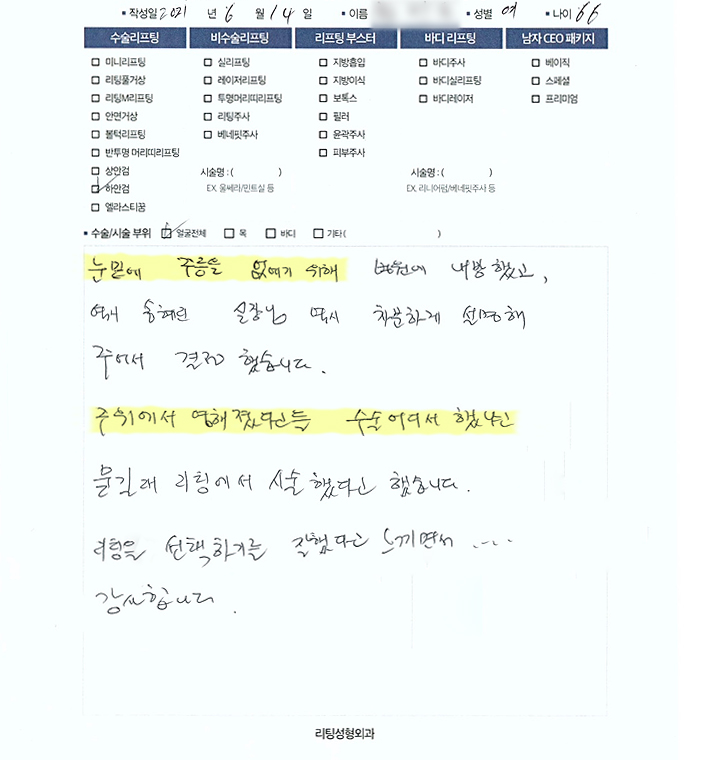 ▪ 작성일 2021 년 6 월 14 일 ▪ 이름 ▪ 성별 여 ▪ 나이 66
수술리프팅 비수술리프팅 리프팅 부스터 바디 리프팅 남자 CEO 패키지
미니리프팅 실리프팅 지방흡입 바디주사 베이직
리팅풀거상 레이저리프팅 지방이식 바디실리프팅 스페셜
리팅M리프팅 투명머리띠리프팅 보톡스 바디레이저 프리미엄
안면거상 리팅주사 필러
볼턱리프팅 베네핏주사 윤곽주사
반투명 머리띠리프팅 피부주사
상안검 시술명 : ( ) 시술명 : ( )
하안검 EX. 울쎄라/민트실 등 EX. 리니어펌/베네핏주사 등
엘라스티꿈
▪ 수술/시술 부위 얼굴전체 목 바디 기타 ( )
눈밑에 주름을 없애기 위해 병원에 내방했고,
송혜린 실장님 역시 차분하게 설명해
주어서 결정 했습니다.
주위에서 수술 어디서 했냐고
물길래 리팅에서 시술했다고 했습니다.
리팅을 선택하기를 잘했다고 느끼면서 ....
감사합니다.
리팅성형외과